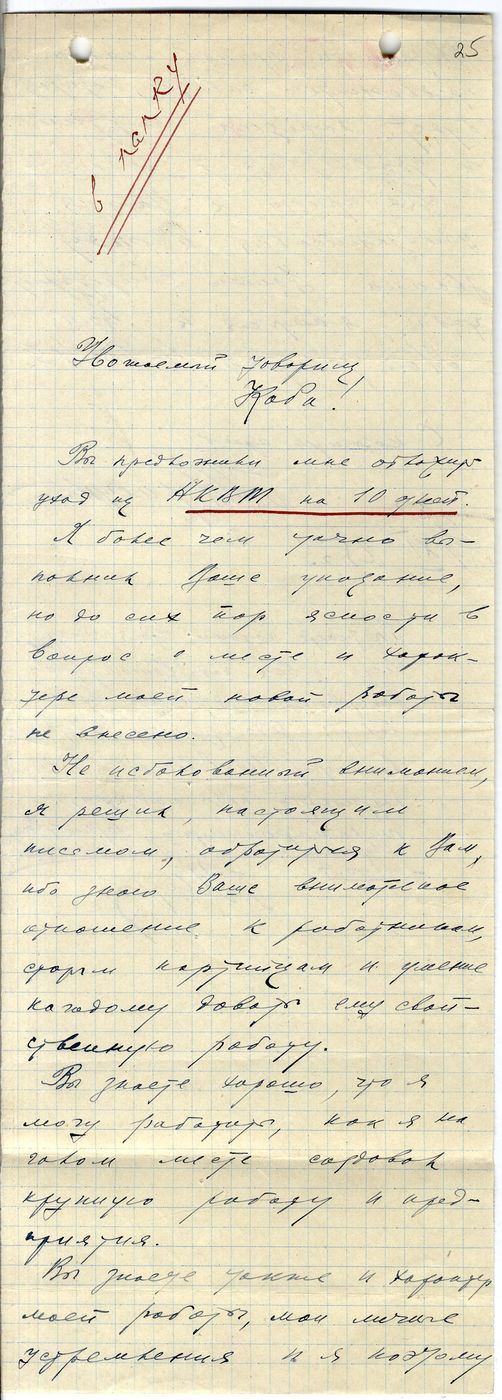 25
в папку
Уважаемый товарищ
Коба!
Вы предложили мне обождать
уход из НКВТ на 10 дней.
Я более чем точно вы-
полнил Ваше указание,
но до сих пор ясности в
вопрос о месте и харак-
тере моей новой работы
не внесено.
Не избалованный вниманием,
я решил, настоящим
письмом, обратиться к Вам,
ибо знаю Ваше внимательное
отношение к работникам,
старым партийцам и умение
каждому давать ему свой-
ственную работу.
Вы знаете хорошо, что я
могу работать, как я на
голом месте создавал
крупную работу и пред-
приятия.
Вы знаете также и характер
моей работы, мои личные
устремления и я поэтому